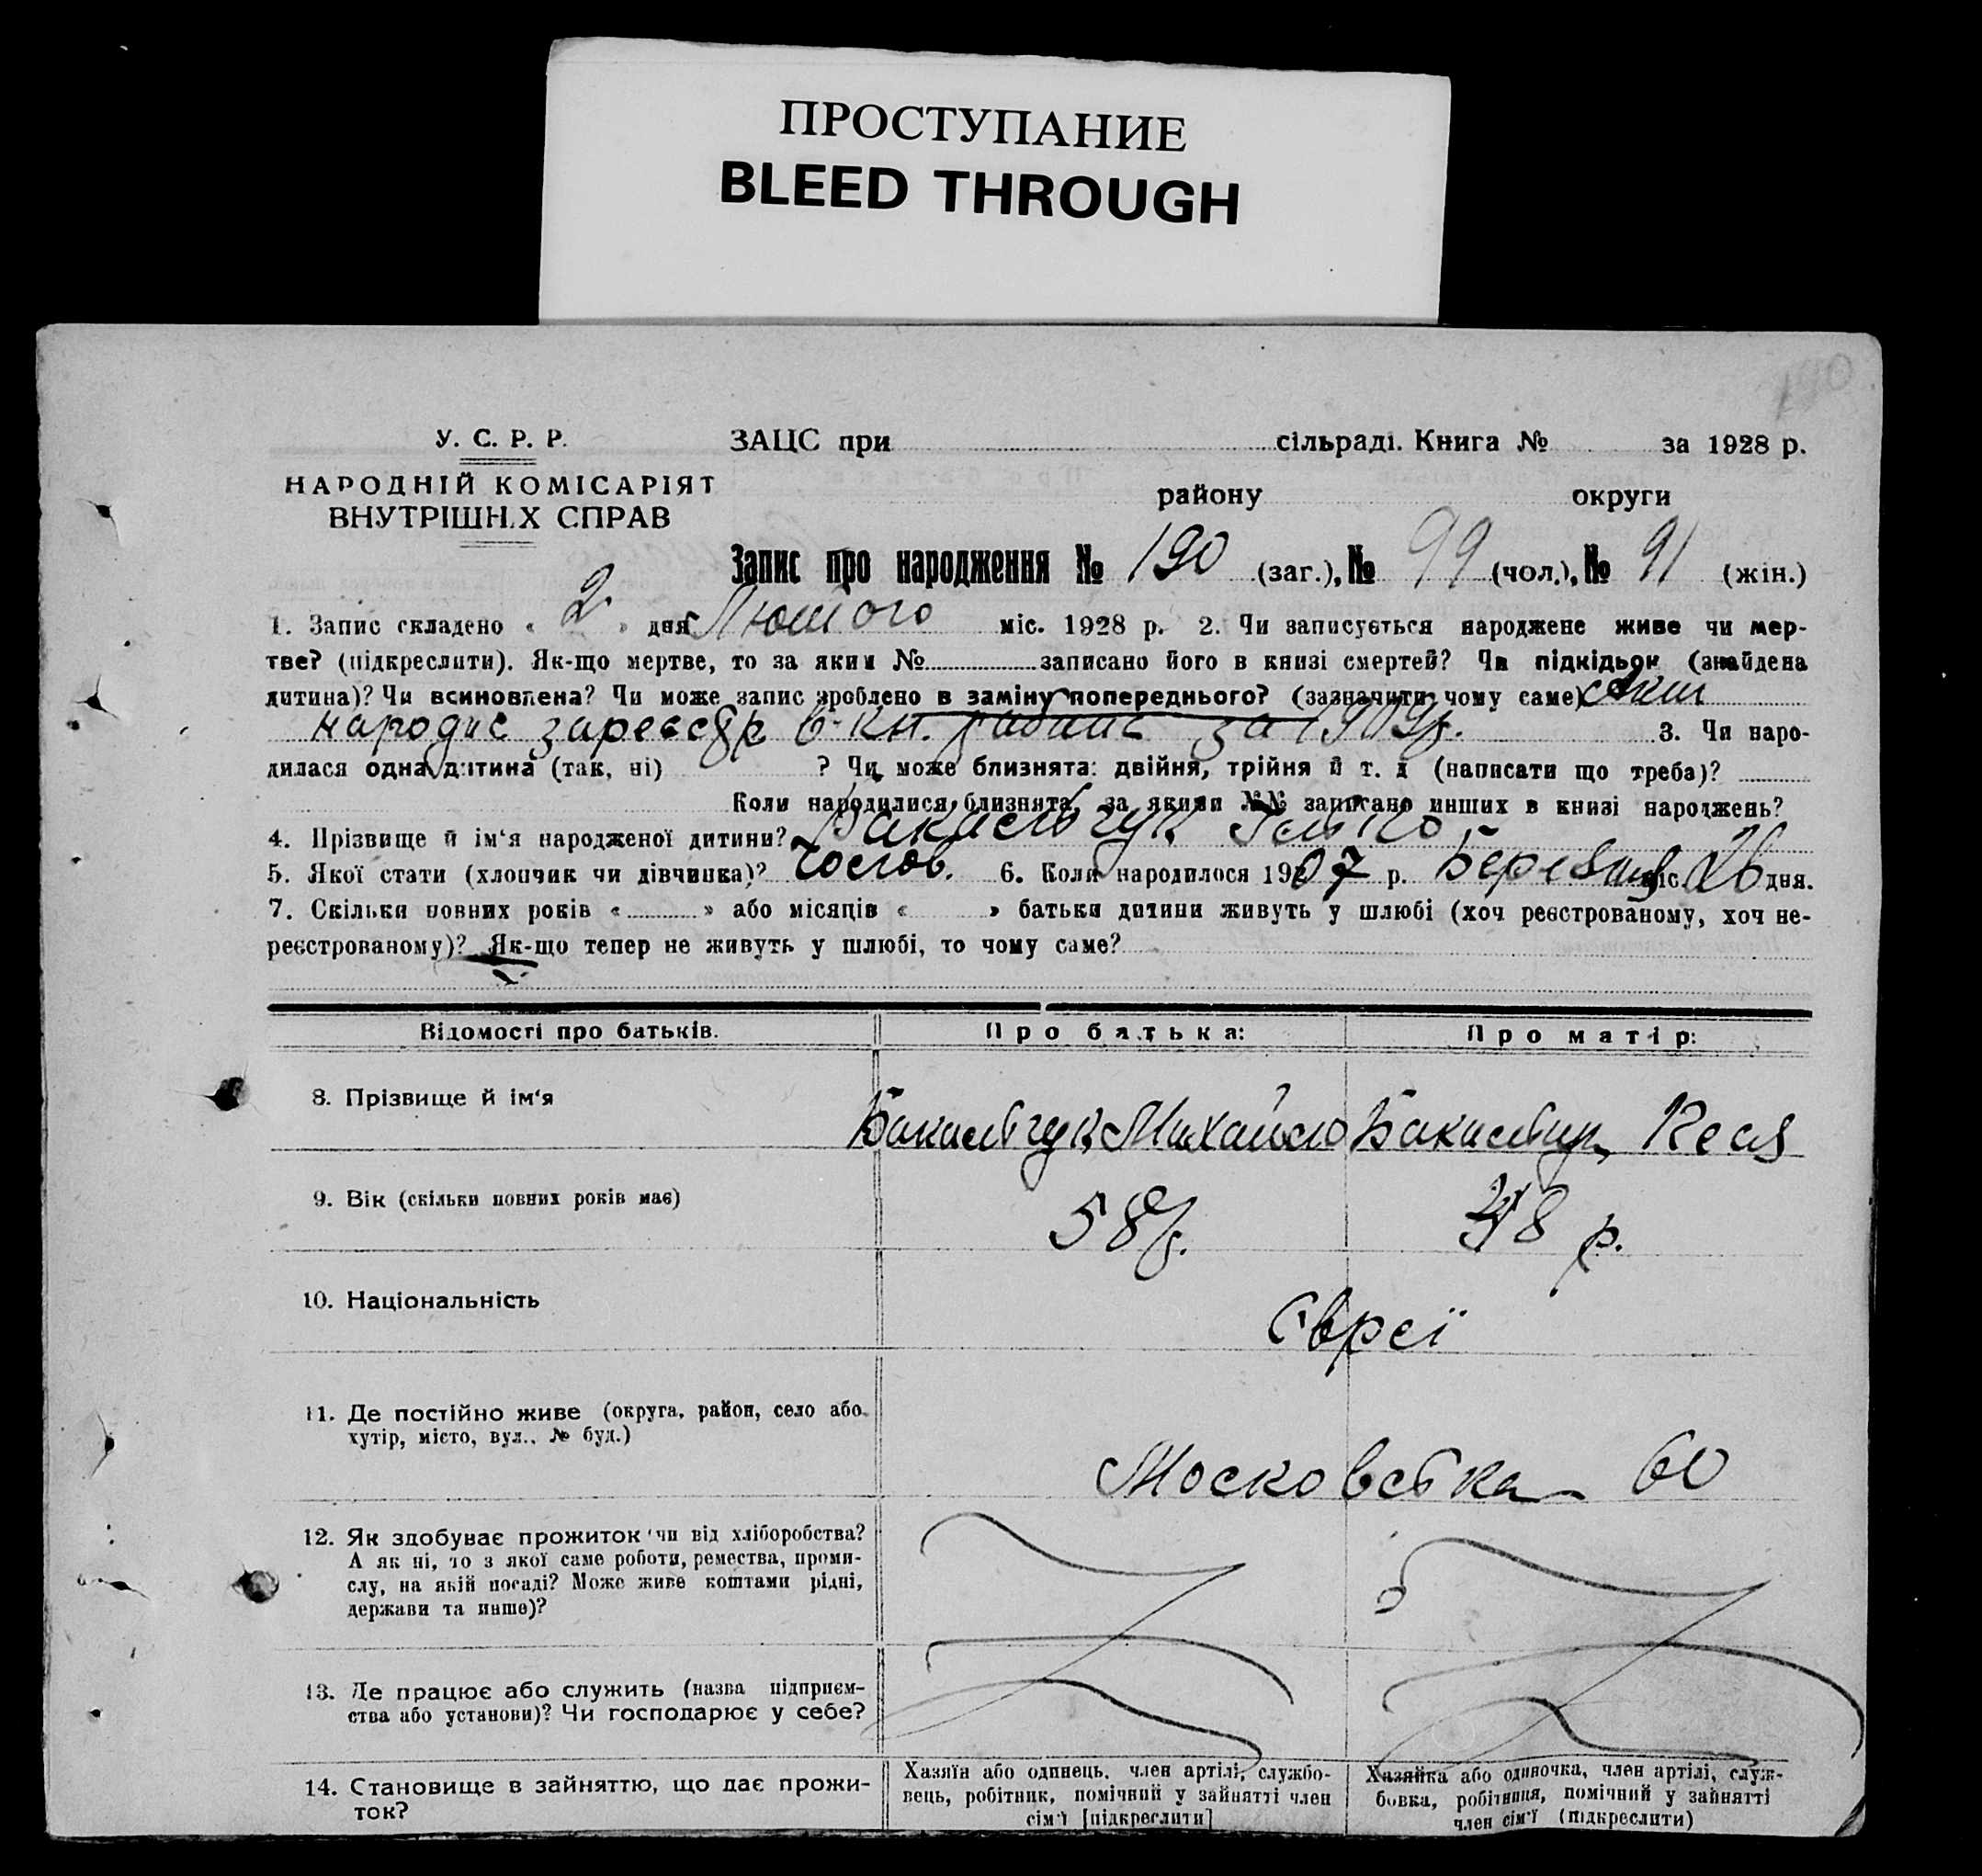 ПРОСТУПАНИЕ
BLEED THROUGH
190
У. С. Р. Р.
НАРОДНІЙ КОМІСАРІЯТ
ВНУТРІШНІХ СПРАВ
ЗАЦС при сільраді. Книга № за 1928 р.
району округи
Запис про народження № 190 (заг.), № 99 (чол.), № 91 (жін.)
1. Запис складено « 2 » дня Лютого міс. 1928 р. 2. Чи записується народжене живе чи мер-
тве? (підкреслити). Як-що мертве, то за яким № записано його в книзі смертей? Чи підкідьок (знайдена
дитина)? Чи всиновлена? Чи може запис зроблено в заміну попереднього? (зазначити чому саме) акт
народж зареєстр в кн. за 1909р. 3. Чи наро-
дилася одна дитина (так, ні) ? Чи може близнята: двійня, трійня й т. д (написати що треба)?
Коли народилися близнята, за якими №№ записано инших в книзі народжень?
4. Прізвище й ім‘я народженої дитини?
5. Якої стати (хлопчик чи дівчинка)? Чолов. 6. Коли народилося 1907 р. Березня міс. 26 дня.
7. Скільки повних років « » або місяців « » батьки дитини живуть у шлюбі (хоч реєстрованому, хоч не-
реєстрованому)? Як-що тепер не живуть у шлюбі, то чому саме?
Відомості про батьків. Про батька: Про матір:
8. Прізвище й ім‘я Михайло
9. Вік (скільки повних років має) 58р. 48 р.
10. Національність Євреї
11. Де постійно живе (округа, район, село або
хутір, місто, вул., № буд.) Московська 60
12. Як здобуває прожиток чи від хліборобства?
А як ні, то з якої саме роботи, ремества, проми-
слу, на якій посаді? Може живе коштами рідні,
держави та инше)?
13. Де працює або служить (назва підприєм-
ства або установи)? Чи господарює у себе?
14. Становище в зайняттю, що дає прожи-
ток?
Хазяїн або одинець, член артілі, службо-
вець, робітник, помічний у зайнятті член
сім‘ї [підкреслити]
Хазяйка або одиночка, член артілі, служ-
бовка, робітниця, помічний у зайнятті
член сім‘ї (підкреслити)